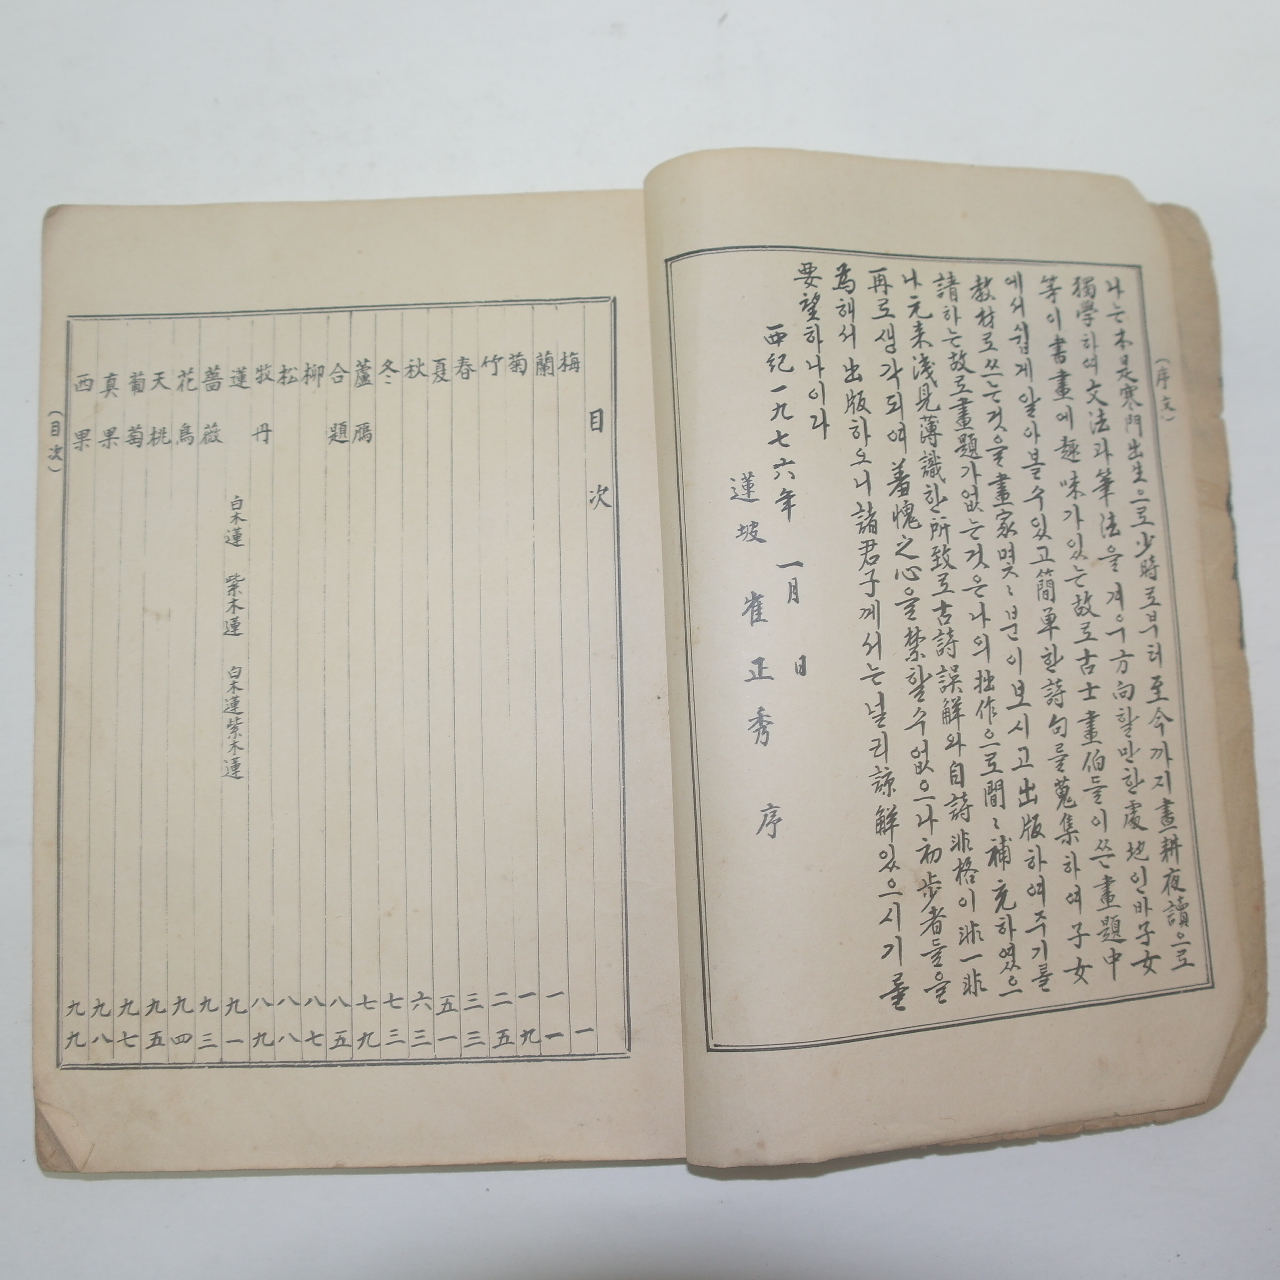 (序文)
나는本是寒門出生으로少時로부터至今까지晝耕夜讀으로
獨學하여文法과筆法을겨우方向할만한處地인바子女
等이書畫에趣味가있는故로古士畫伯들이쓴畫題中
에서쉽게알아볼수있고簡單한詩句를蒐集하여子女
敎材로쓰는것을畫家몇〻분이보시고出版하여주기를
請하는故로畫題가없는것은나의拙作으로間〻補充하였으
나元來浅見薄識한所致로古詩誤解와自詩非格이非一非
再로생각되여羞愧之心을禁할수없으나初步者들을
爲해서出版하오니諸君子께서는널리諒解있으시기를
要望하나이다
西紀一九七六年 一月 日
蓮坡 崔正秀 序
目次
梅 一
蘭 一一
菊 一九
竹 二五
春 三三
夏 五一
秋 六三
冬 七三
蘆雁 七九
合題 八五
柳 八七
松 八八
牧丹 八九
蓮 白木蓮 紫木蓮 白木蓮紫木蓮 九一
薔薇 九三
花鳥 九四
天桃 九五
葡萄 九七
真果 九八
西果 九九
(目次)